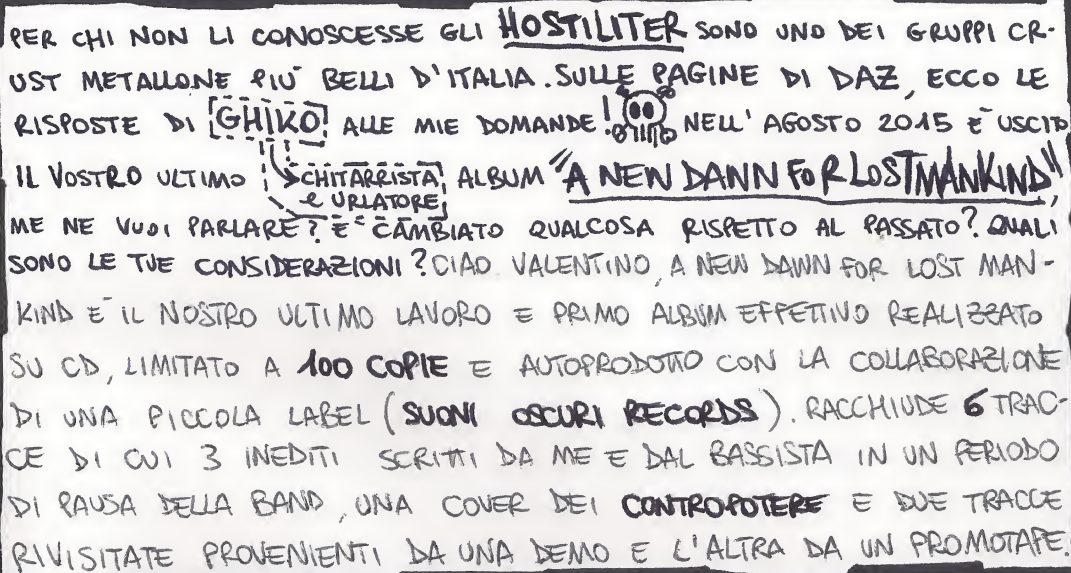 PER CHI NON LI CONOSCESSE GLI HOSTILITER SONO UNO DEI GRUPPI CR-
UST METALLONE PIÙ BELLI D'ITALIA. SULLE PAGINE DI DAZ, ECCO LE
RISPOSTE DI GHIKO! ALLE MIE DOMANDE! NELL'AGOSTO 2015 È USCITO
IL VOSTRO ULTIMO CHITARRISTA ALBUM "A NEW DANN FOR LOST MANKIND",
e URLATORE
ME NE VUOI PARLARE? È CAMBIATO QUALCOSA RISPETTO AL PASSATO? QUALI
SONO LE TUE CONSIDERAZIONI? CIAO VALENTINO, A NEW DAWN FOR LOST MAN-
KIND È IL NOSTRO ULTIMO LAVORO E PRIMO ALBUM EFFETTIVO REALIZZATO
SU CD, LIMITATO A 100 COPIE E AUTOPRODOTTO CON LA COLLABORAZIONE
DI UNA PICCOLA LABEL (SUONI OSCURI RECORDS). RACCHIUDE 6 TRAC-
CE DI CUI 3 INEDITI SCRITTI DA ME E DAL BASSISTA IN UN PERIODO
DI PAUSA DELLA BAND, UNA COVER DEI CONTROPOTERE E DUE TRACCE
RIVISITATE PROVENIENTI DA UNA DEMO E L'ALTRA DA UN PROMOTAPE.